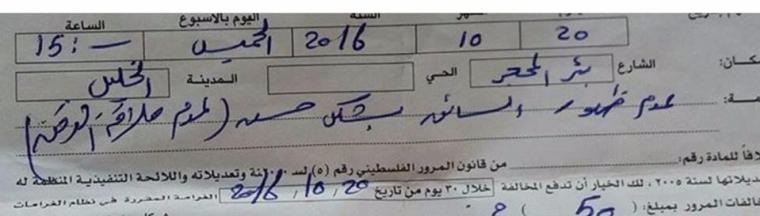 الشهر السنة اليوم بالأسبوع الساعة
20 10 2016 الخميس 15:—
الشارع بئر المحجر الحي المدينة الخليل
عدم ظهور السائق بشكل حسن (لعدم حلاقة الذقن)
من قانون المرور الفلسطيني رقم (٥) لسنة وتعديلاته واللائحة التنفيذية المنظمة له
لسنة ٢٠٠٥، لك الخيار أن تدفع المخالفة خلال ٣٠ يوم من تاريخ 20/10/2016 الغرامة المقررة في نظام الغرامات
المرور بمبلغ: ( 50 )